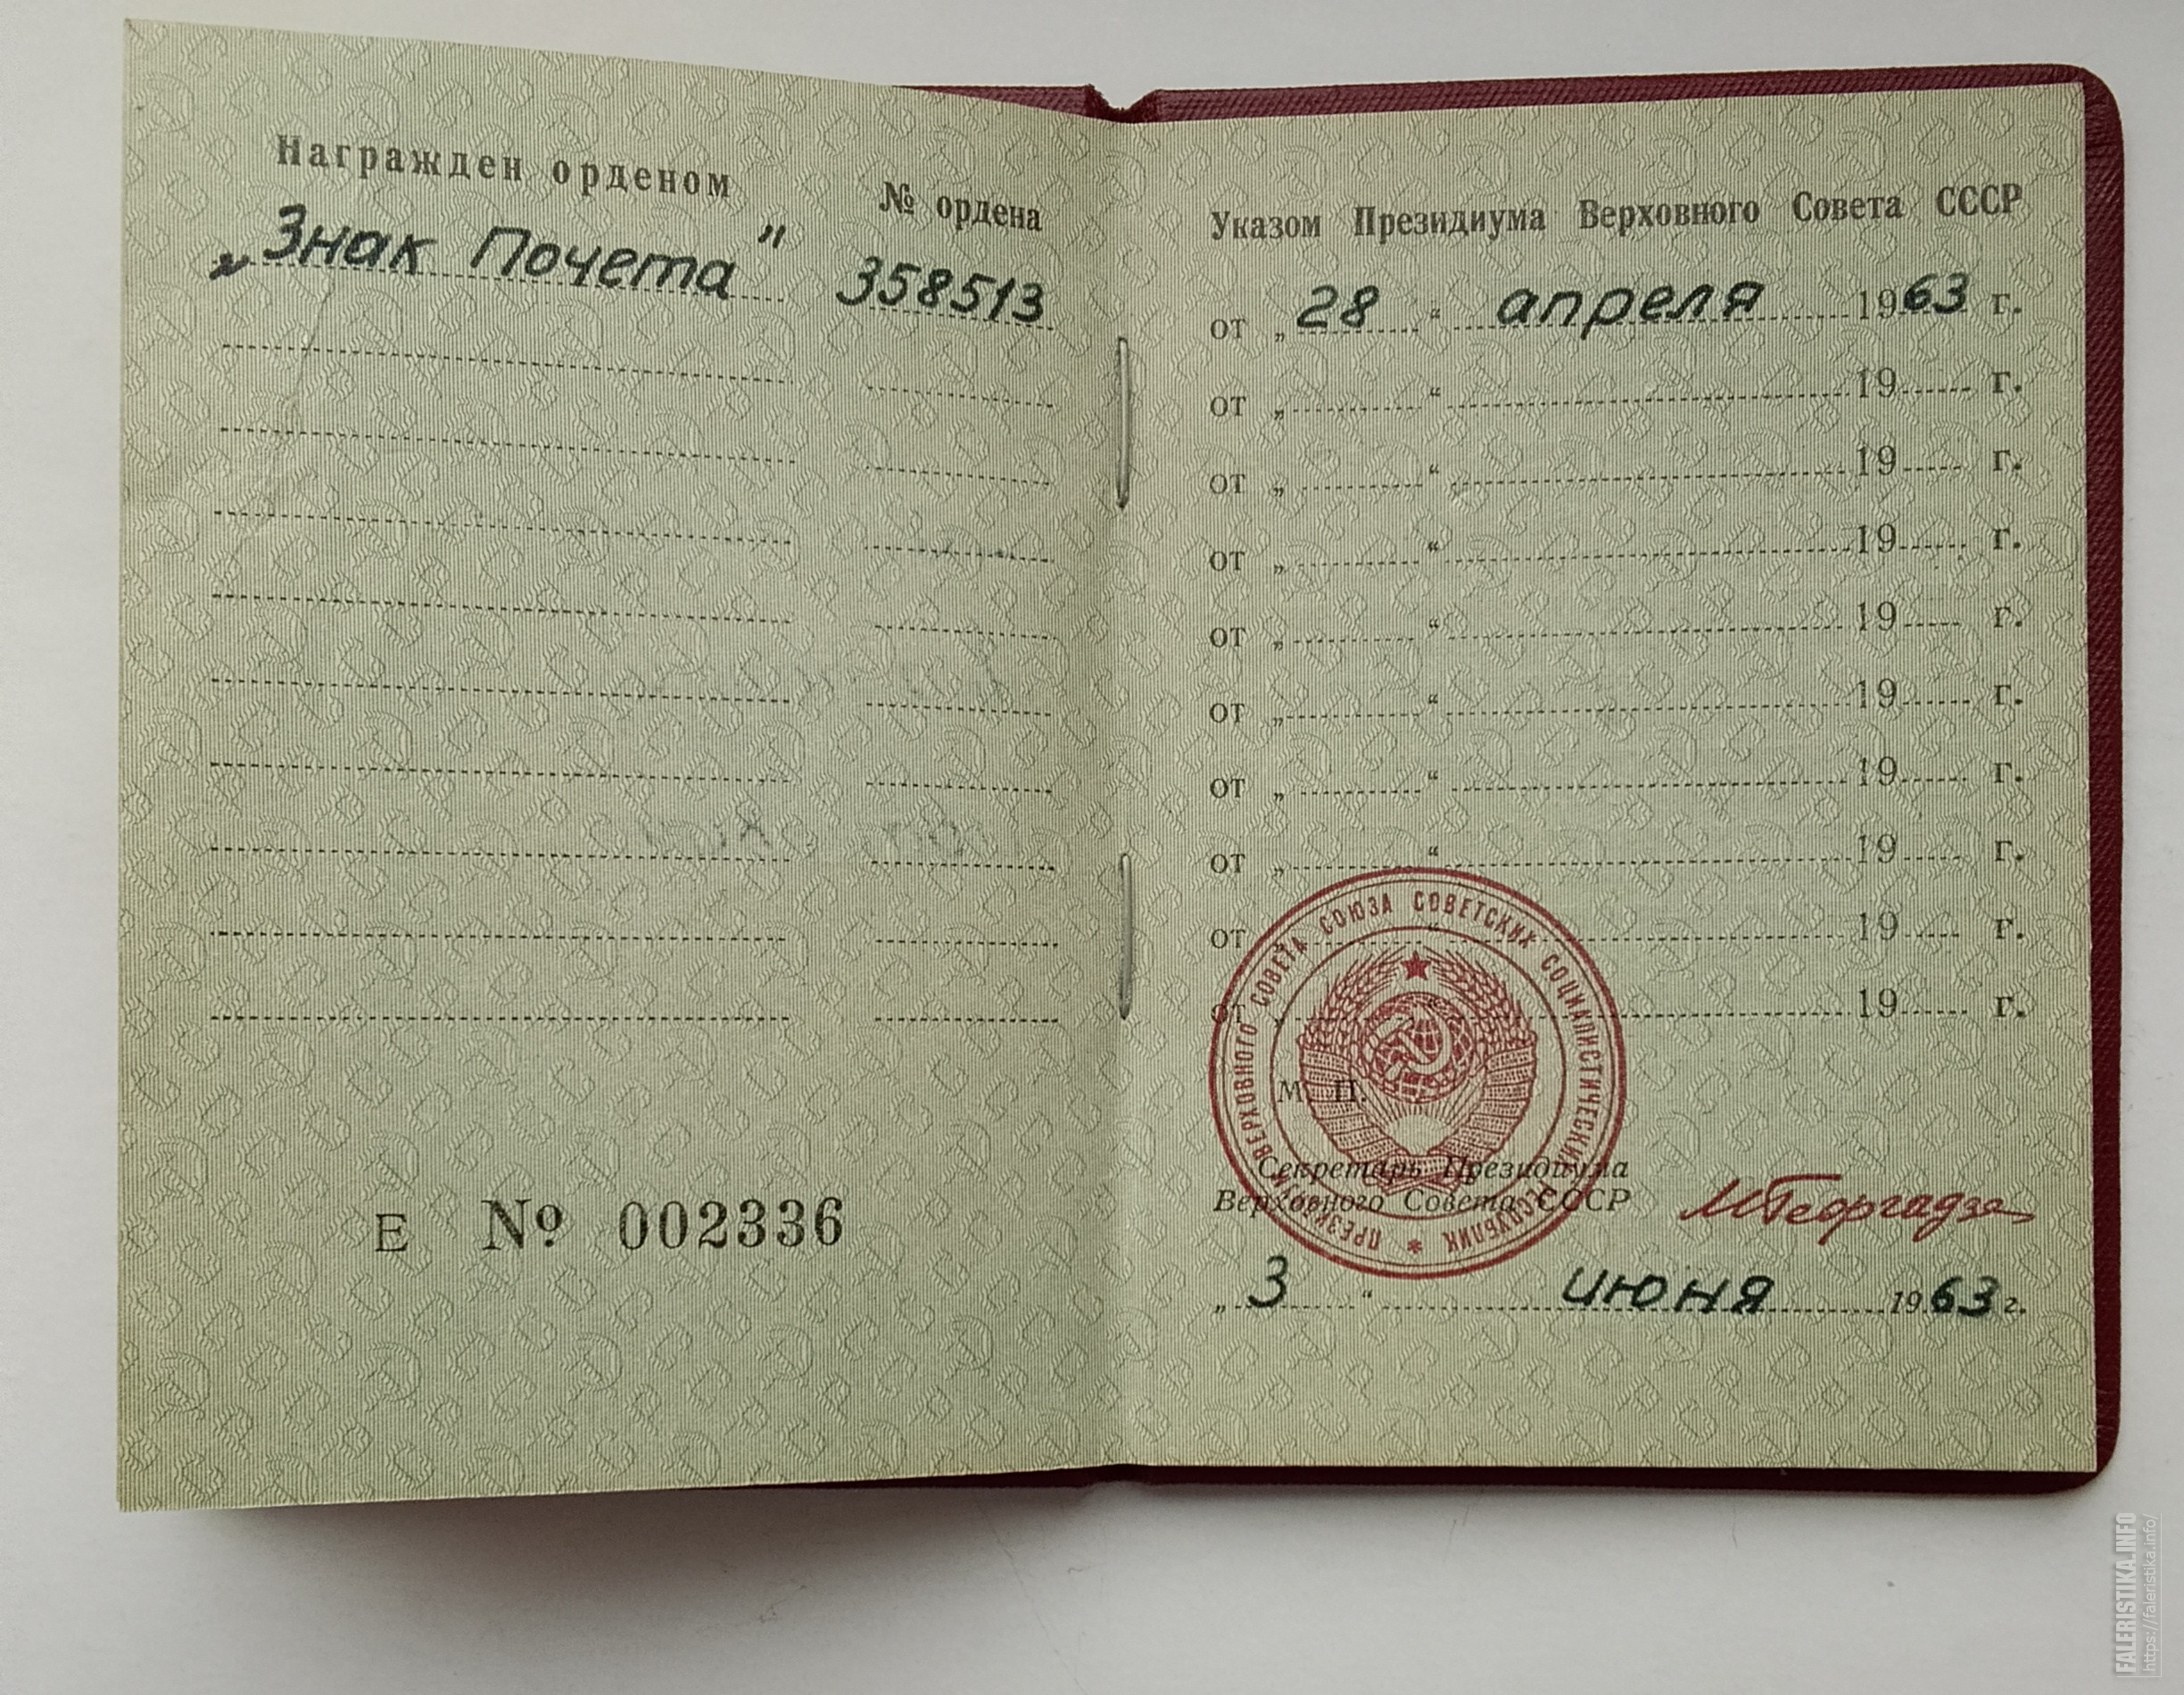 Награжден орденом № ордена
„Знак Почета" 358513
Е № 002336
Указом Президиума Верховного Совета СССР
от „28“ апреля 1963 г.
от „ “ 19 г.
от „ “ 19 г.
от „ “ 19 г.
от „ “ 19 г.
от „ “ 19 г.
от „ “ 19 г.
от „ “ 19 г.
от „ “ 19 г.
от „ “ 19 г.
ПРЕЗИДИУМ ВЕРХОВНОГО СОВЕТА СОЮЗА СОВЕТСКИХ СОЦИАЛИСТИЧЕСКИХ РЕСПУБЛИК *
М. П.
Секретарь Президиума
Верховного Совета СССР МГеоргадзе
„3“ июня 1963 г.
FALERISTIKA.INFO
https://faleristika.info/